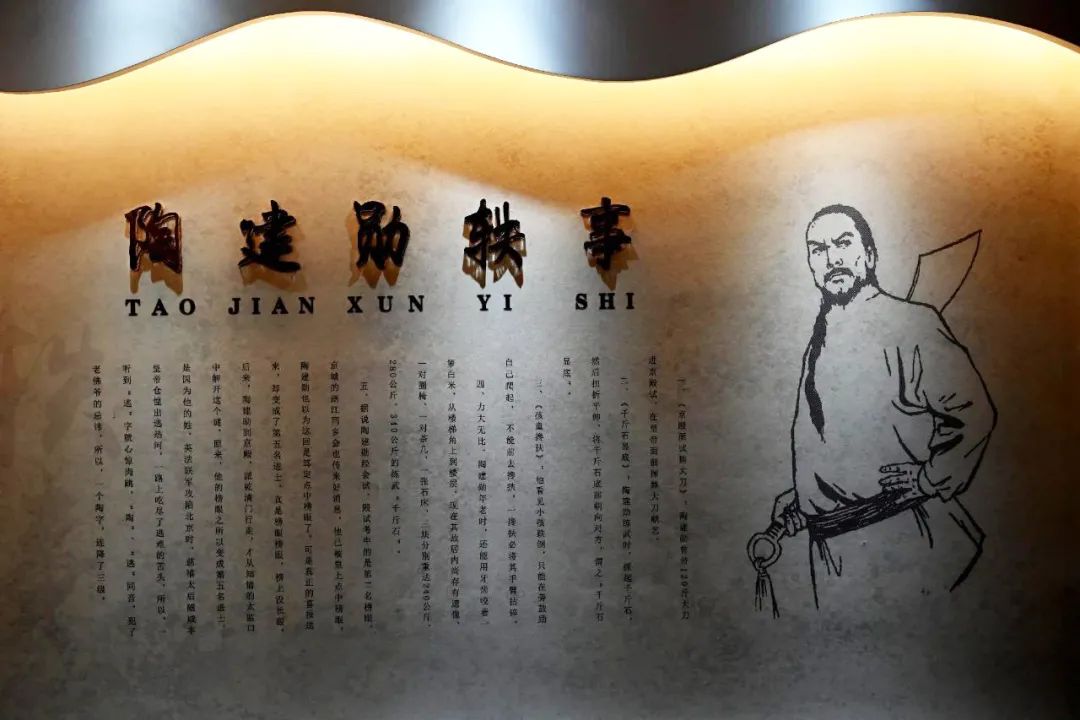 陶建勋轶事
TAO JIAN XUN YI SHI
一、《京殿面试舞大刀》,陶建勋曾带120斤大刀
进京殿试,在皇帝面前演练大刀献艺。
二、《千斤石显底》,陶建勋练武时,抓起千斤石,
然后扭折平伸,将千斤石底部朝向对方,谓之"千斤石
显底"。
三、《孩童搀扶》:他看见小孩跌倒,只能在旁鼓励
自己爬起,不能前去搀扶,一搀扶必将其手臂拈碎。
四、力大无比,陶建勋年老时,还能用牙齿咬着一
箩白米,从楼梯角上到楼层,现在其故居内尚存有遗像、
一对圈椅、一对茶几、一张石床、三块分别重达240公斤、
280公斤、340公斤的练武"千斤石"。
五、据说陶建勋经会试、殿试考中的是第二名榜眼,
京城的浙江同乡会也传来好消息,他已被皇上点中榜眼,
陶建勋也以为这回是笃定点中榜眼了。可是真正的喜报送
来,却变成了第五名进士。真是榜眼榜眼,榜上没长眼,
后来,陶建勋到京殿,派乾清门行走,才从知情的太监口
中解开这个谜。原来,他的榜眼之所以变成第五名进士,
是因为他的姓。英法联军攻陷北京时,慈禧太后随咸丰
皇帝仓惶出逃热河,一路上吃尽了逃难的苦头,所以,
听到"逃"字就心惊肉跳,"陶"、"逃"同音,犯了
老佛爷的忌讳,所以,一个陶字,连降了三级。